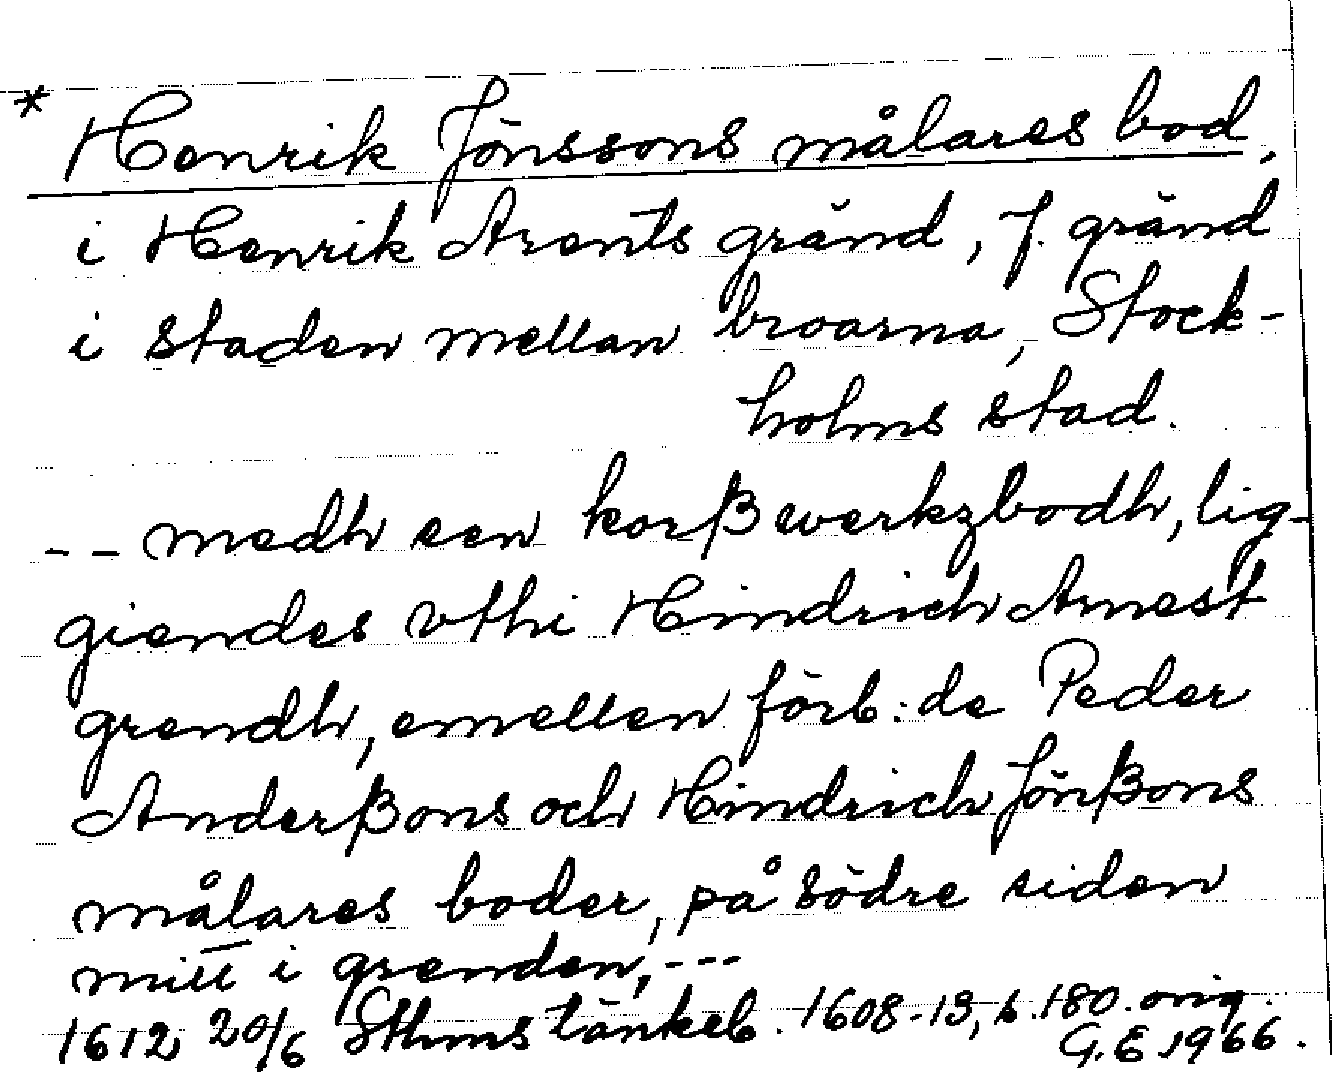 * Henrik Jönssons målares bod,
i Henrik Arents gränd, f. gränd
i staden mellan broarna, Stock-
holms stad.
-- medh een korßwerkzbodh, lig-
giendes vthi Hindrich Arnest
grendh, emellen förb:de Peder
Anderßons och Hindrich Jönßons
målares boder, på södre siden
mitt i grenden, ---
1612 20/6 Sthms tänkeb. 1608-13, s. 180. orig.
G. E 1966.